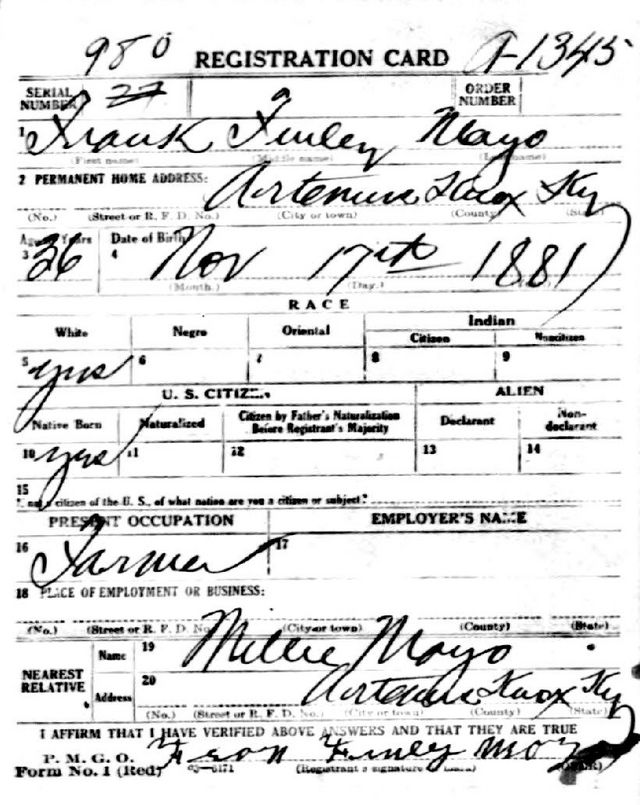 980 REGISTRATION CARD A-1345
SERIAL NUMBER 27 ORDER NUMBER
1 Frank Finley Mayo
(First name) (Middle name) (Last name)
2 PERMANENT HOME ADDRESS:
Artemus Knox Ky
(No.) (Street or R. F. D. No.) (City or town) (County) (State)
Age in Years Date of Birth
3 36 4 Nov 17th 1881
(Month.) (Day.)
RACE
White Negro Oriental Indian
Citizen Noncitizen
5 yes 6 7 8 9
U. S. CITIZEN ALIEN
Native Born Naturalized Citizen by Father's Naturalization Before Registrant's Majority Declarant Non-declarant
10 yes 11 12 13 14
15
If not a citizen of the U. S., of what nation are you a citizen or subject?
PRESENT OCCUPATION EMPLOYER'S NAME
16 Farmer 17
18 PLACE OF EMPLOYMENT OR BUSINESS:
(No.) (Street or R. F. D. No.) (City or town) (County) (State)
NEAREST RELATIVE Name 19 Millie Mayo
Address 20 Artemus Knox Ky
(No.) (Street or R. F. D. No.) (City or town) (County) (State)
I AFFIRM THAT I HAVE VERIFIED ABOVE ANSWERS AND THAT THEY ARE TRUE
P. M. G. O.
Form No. 1 (Red) 03-6171 Finley Mayo
(Registrant's signature or mark) (OVER)